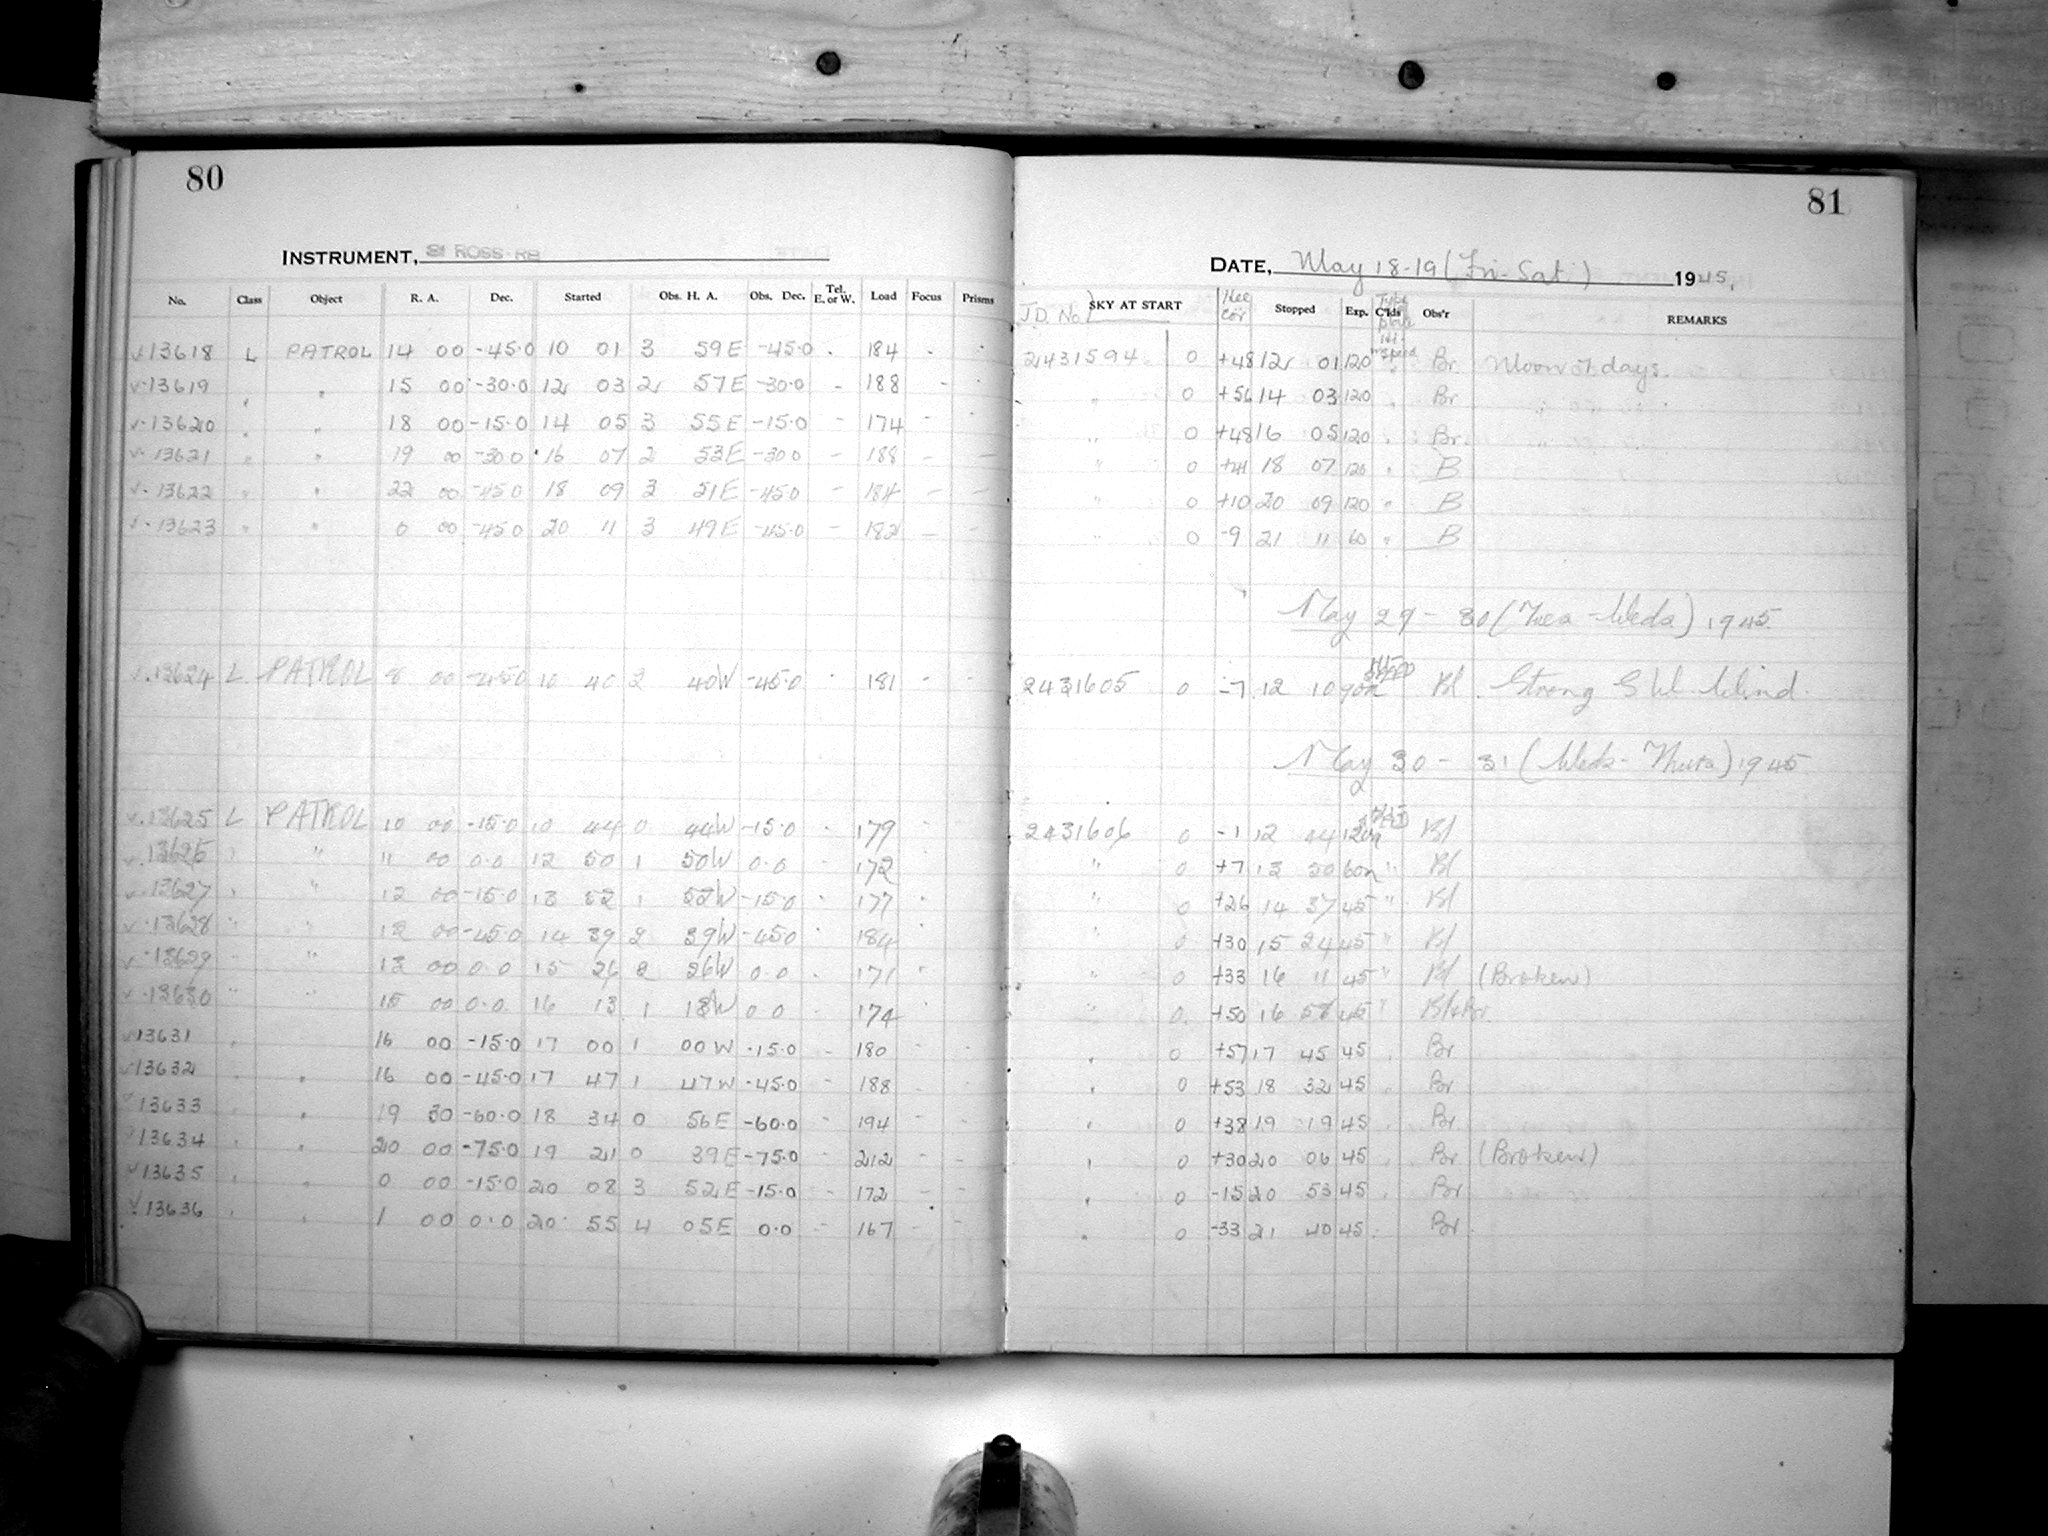 80
INSTRUMENT, ROSS-RB
No. Class Object R. A. Dec. Started Obs. H. A. Obs. Dec. Tel. E. or W. Load Focus Prisms
13618 L PATROL 14 00 -45.0 10 01 3 59E -45.0 - 184 - -
13619 " " 15 00 -30.0 12 03 2 57E -30.0 - 188 - -
13620 " " 18 00 -15.0 14 05 3 55E -15.0 - 174 - -
13621 " " 19 00 -30.0 16 07 2 53E -30.0 - 188 - -
13622 " " 22 00 -45.0 18 09 3 51E -45.0 - 184 - -
13623 " " 0 00 -45.0 20 11 3 49E -45.0 - 182 - -
13624 L PATROL 8 00 -45.0 10 40 2 40W -45.0 - 181 - -
13625 L PATROL 10 00 -15.0 10 44 0 44W -15.0 - 179 - -
13626 " " 11 00 0.0 12 50 1 50W 0.0 - 172 - -
13627 " " 12 00 -15.0 13 52 1 52W -15.0 - 177 - -
13628 " " 12 00 -45.0 14 39 2 39W -45.0 - 184 - -
13629 " " 13 00 0.0 15 26 2 26W 0.0 - 171 - -
13630 " " 15 00 0.0 16 13 1 13W 0.0 - 174 - -
13631 " 16 00 -15.0 17 00 1 00W -15.0 - 180 - -
13632 " " 16 00 -45.0 17 47 1 47W -45.0 - 188 - -
13633 " " 19 30 -60.0 18 34 0 56E -60.0 - 194 - -
13634 " " 20 00 -75.0 19 21 0 39E -75.0 - 212 - -
13635 " " 0 00 -15.0 20 08 3 52E -15.0 - 172 - -
13636 " " 1 00 0.0 20 55 4 05E 0.0 - 167 - -
81
DATE, May 18-19 (Fri-Sat) 1945.
J.D. No. SKY AT START Rec Cor Stopped Exp. C'lds Type plate Obs'r REMARKS
2431594 0 +48 12 01 120 Hi-speed Br Moon 07 days.
" 0 +56 14 03 120 " Br "
" 0 +48 16 05 120 " Br "
" 0 +41 18 07 120 " B
" 0 +10 20 09 120 " B
" 0 -9 21 11 60 " B
May 29 - 30 (Tues - Weds) 1945
2431605 0 -7 12 10 90m Bl Strong S W. Wind.
May 30 - 31 (Weds - Thurs) 1945
2431606 0 -1 12 44 120m Bl
" 0 +7 13 50 60m " Bl
" 0 +26 14 37 45 " Bl
" 0 +30 15 24 45 " Bl
" 0 +33 16 11 45 " Bl (Broken)
" 0 +50 16 58 45 " Bl+Br
" 0 +57 17 45 45 " Br
" 0 +53 18 32 45 " Br
" 0 +38 19 19 45 Br
" 0 +30 20 06 45 " Br (Broken)
" 0 -15 20 53 45 " Br
" 0 -33 21 40 45 " Br